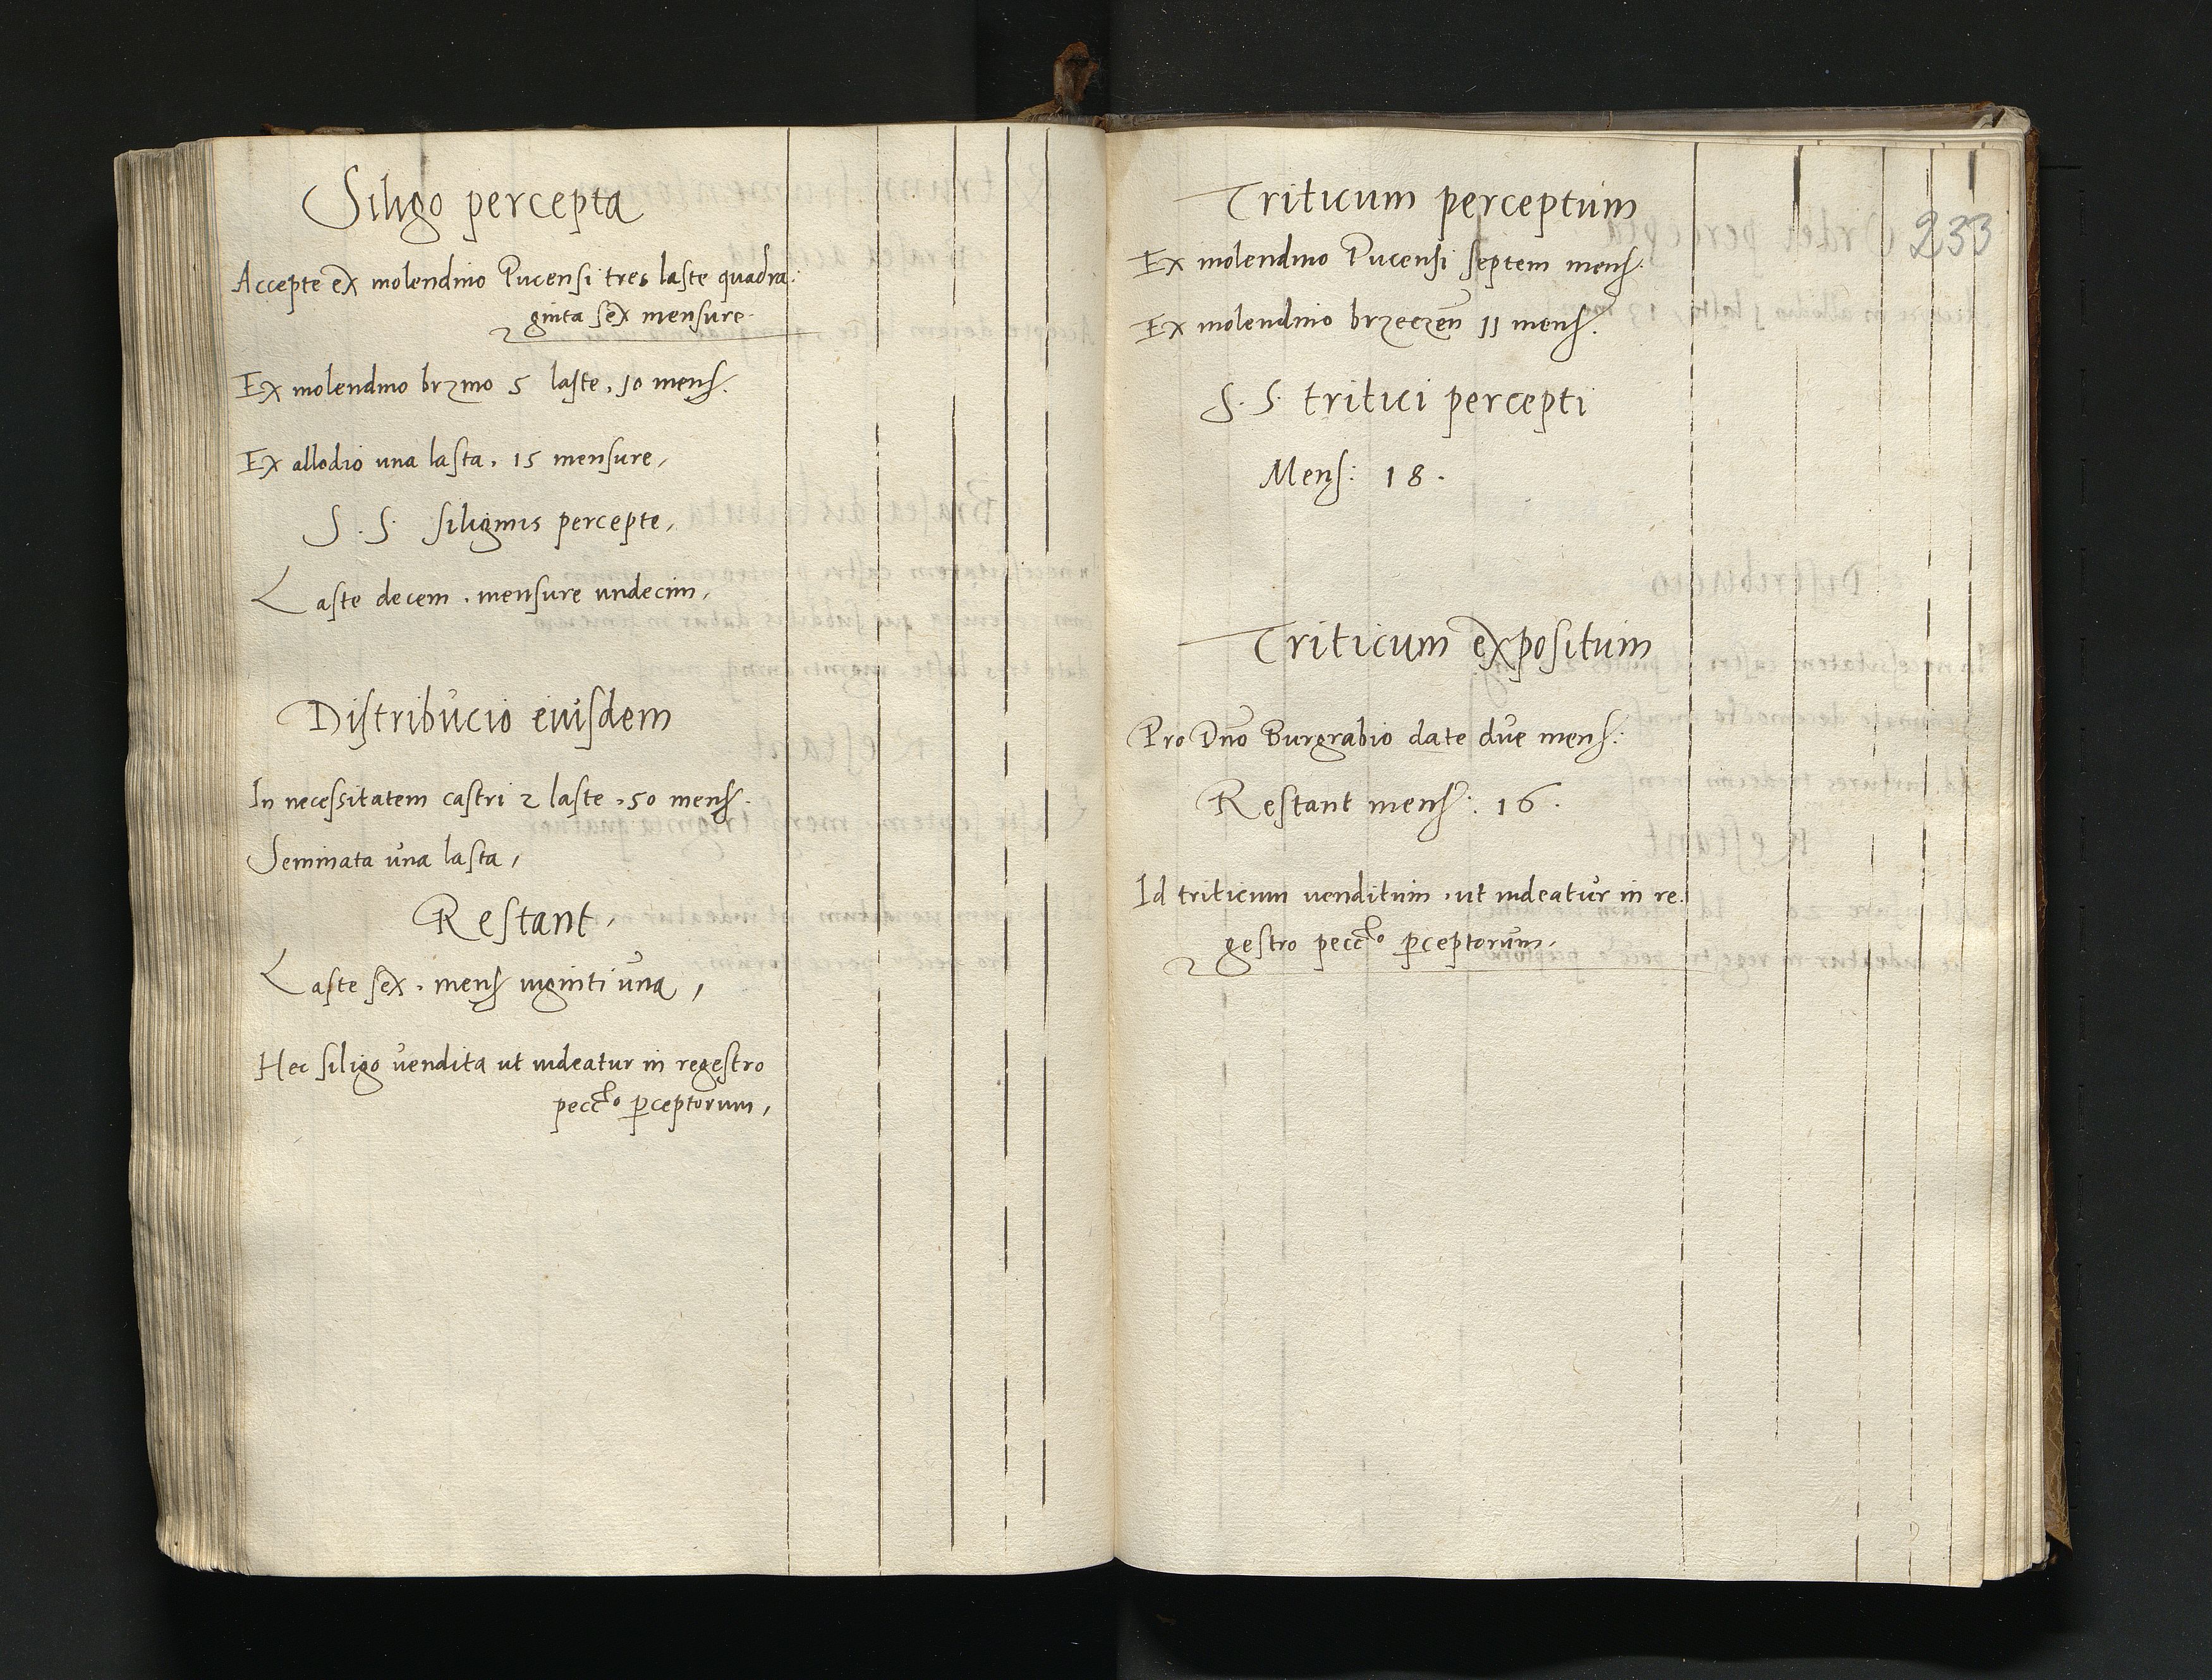 Siligo percepta
Accepte ex molendino Pucensi tres laste quadra:
ginta sex mensure.
Ex molendino brzmo 5 laste. 10 mens.
Ex allodio una lasta. 15 mensure,
S. S. siliginis percepte,
Laste decem. mensure undecim,
Distribucio eiusdem
In necessitatem castri 2 laste. 50 mens.
Seminata una lasta,
Restant,
Laste sex. mens viginti una,
Hec siligo vendita ut videatur in regestro
pecc̃to ꝑceptorum,
233
Triticum perceptum
Ex molendino Pucensi septem mens:
Ex molendino brzeczeñ 11 mens.
S. S. tritici percepti
Mens: 18.
Triticum expositum
Pro Dno Burgrabio date due mens:
Restant mens: 16.
Id triticum venditum. ut videatur in re:
gestro pecc̃to ꝑceptorum,